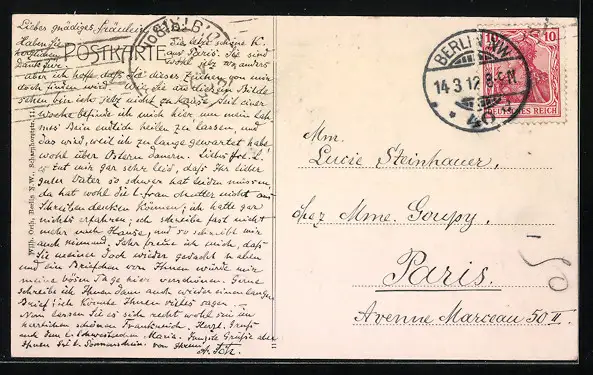 Liebes gnädiges Fräulein
POSTKARTE
Haben Sie
herzlichen
Dank für
die letzte schöne K.
aus Paris. Sie sind
wohl jetzt wo anders
aber ich hoffe daß Sie dieses Zeichen von mir
doch finden wird. Wie Sie aus diesem Bilde
sehen bin ich jetzt nicht zu Hause, seit einer
Woche befinde ich mich hier um mein
Bein endlich heilen zu lassen, und
das wird, weil ich zu lange gewartet habe
wohl über Ostern dauern. Liebs
Es tut mir gar sehr leid, daß Ihr lieber
guter Vater so schwer hat leiden müssen,
da hat wohl die l. Frau nicht ans
Schreiben denken können; ich hatte gar
nichts erfahren; ich schreibe fast nicht
mehr nach Hause, und so schreibt mir
auch niemand. Sehr freue ich mich, daß
Sie meiner doch wieder gedacht haben
und ein Briefchen von Ihnen würde mir
meine bösen Tage hier verschönen. Gerne
schreibe ich Ihnen dann auch wieder einen langen
Brief; ich könnte Ihnen vieles sagen.
Nun lassen Sie es sich recht wohl sein im
herrlichen schönen Frankreich. Herzl. Grüße
auch dem l. Schwesterchen Maria. Innigste Grüße aber
Ihnen von Ihrem
Wilh. Orth, Berlin N.W., Scharnhorststr.
BERLIN NW
14 3 12 8-9N
* 40
10
DEUTSCHES REICH
Mm.
Lucie Steinhauer,
chez Mme. Goupy,
Paris.
Avenue Marceau 50 II.
50